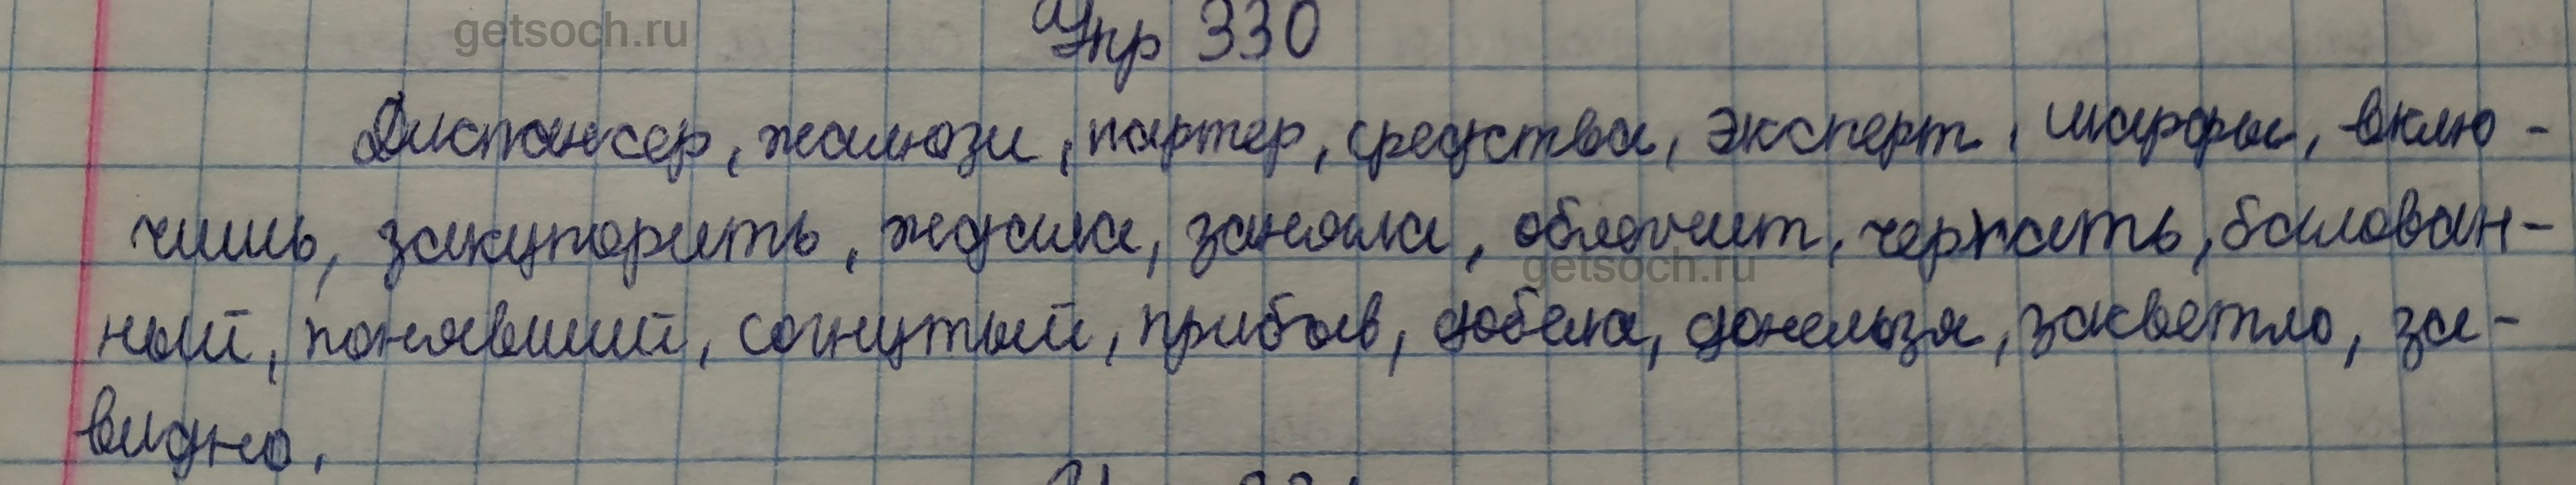 getsoch.ru
Упр 330
Диспансер, жалюзи, партер, средства, эксперт, шарфы, вклю-
чишь, закупорить, ждала, заняла, облегчит, черпать, балован-
getsoch.ru
ный, понявший, согнутый, прибыв, добела, донельзя, засветло, за-
видно.